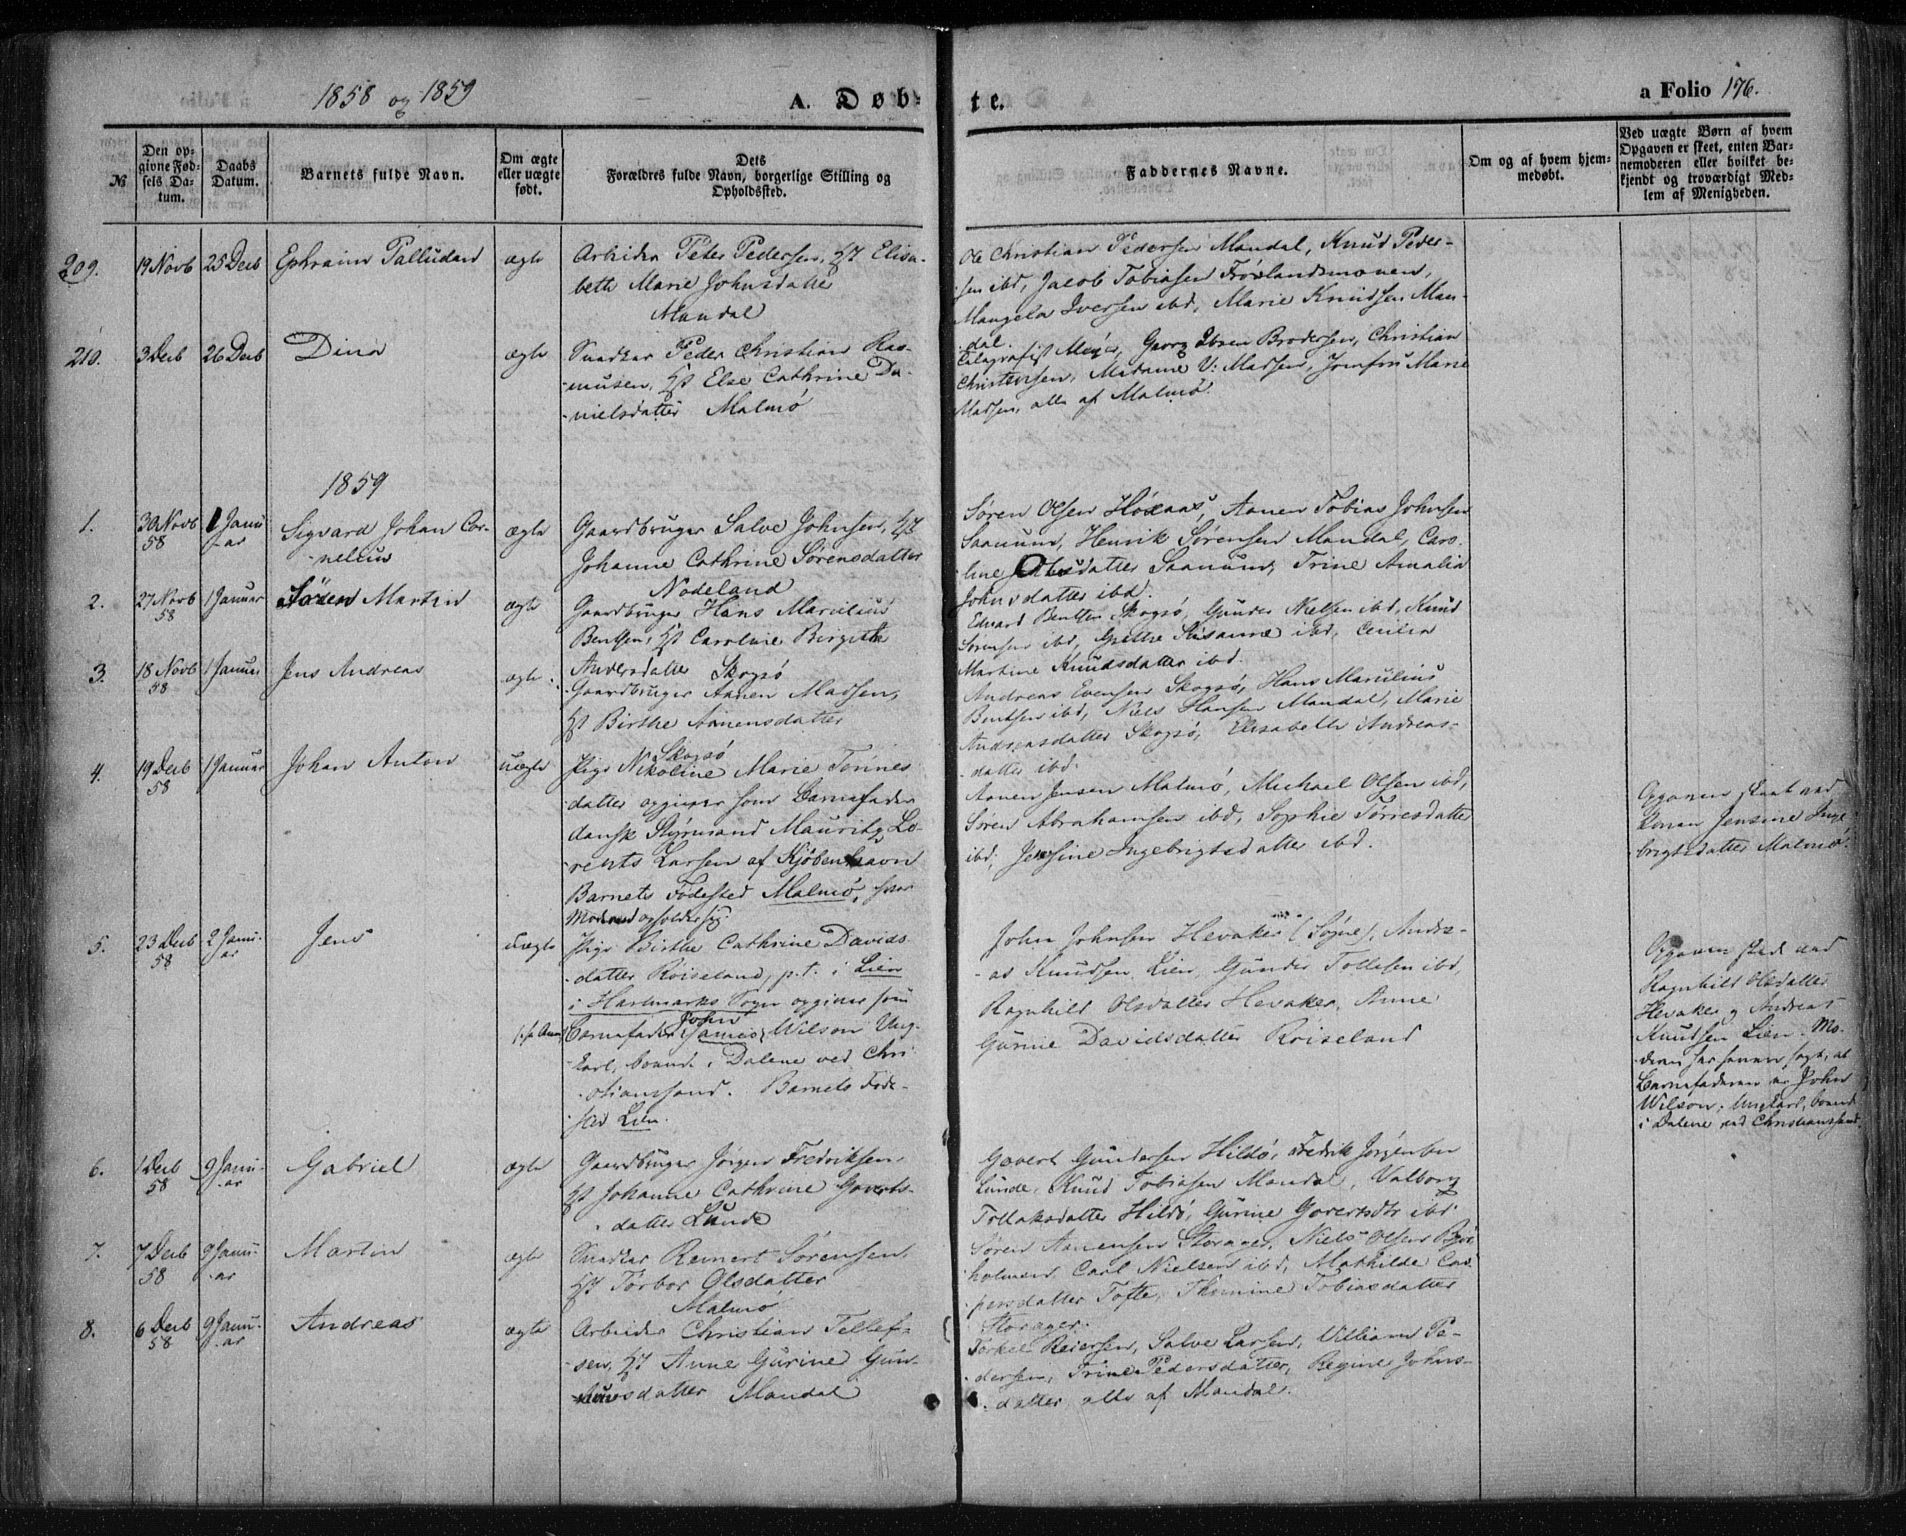 1858 og 1859
A. Døbte.
a Folio 176.
№
Den opgivne Fødsels Datum.
Daabs Datum.
Barnets fulde Navn.
Om ægte eller uægte født.
Dets Forældres fulde Navn, borgerlige Stilling og Opholdssted.
Faddernes Navne.
Om og af hvem hjemmedøbt.
Ved uægte Børn af hvem Opgaven er skeet, enten Barnemoderen eller hvilket bekjendt og troværdigt Medlem af Menigheden.
209. 19 Novb 25 Decb Ephraim Palludan ægte
Arbeider Peter Pedersen, Hst Elisa-
beth Marie Johnsdatter
Mandal
Ole Christian Pedersen Mandal, Knud Peder-
sen ibd, Jacob Tobiasen Frøslandsmonen,
Mangela Iversen ibd, Marie Knudsen Man-
dal.
210. 3 Decb 26 Decb Dina ægte
Snedker Peder Christian Ras-
musen, Hst Else Cathrine Da-
nielsdatter Malmö
Telegrafist Meyer, Georg Ibsen Brodersen, Christian
Christensen, Madame V: Madsen, Jomfru Marie
Madsen, alle af Malmö.
1859
1. 30 Novb 58 1 Januar Sigvard Johan Cor-
nelius ægte
Gaardbruger Salve Johnsen, Hst
Johanne Cathrine Sørensdatter
Nodeland
Søren Olsen Höxaas, Aanen Tobias Johnsen
Saanum, Henrik Sørensen Mandal, Caro-
line Olsdatter Saanum, Trine Amalia
Johnsdatter ibd.
2. 27 Novb 58 1 Januar Søren Martin ægte
Gaardbruger Hans Marcelius
Bentsen, Hst Caroline Birgitte
Andersdatter Skogsö
Edvard Bentsen Skogsö, Gunder Nielsen ibd, Knud
Sørensen ibd, Grethe Susanne ibd, Cecilia
Martine Knudsdatter ibd.
3. 18 Novb 58 1 Januar Jens Andreas ægte
Gaardbruger Aanen Madsen,
Hst Birthe Aanensdatter
Skogsö
Andreas Evensen Skogsö, Hans Marcelius
Bentsen ibd, Niels Hansen Mandal, Marie
Andreasdatter Skogsö, Elisabeth Andreas-
datter ibd.
4. 19 Decb 58 1 Januar Johan Anton uægte
Pige Nikoline Marie Torines
datter opgiver som Barnefader
dansk Styrmand Mauritz Lo-
rents Larsen af Kjøbenhavn
Barnets Fødested Malmö, hvor
Moderen opholder sig.
Aanen Jensen Malmö, Michael Olsen ibd,
Søren Abrahamsen ibd, Sophie Törresdatter
ibd, Jensine Ingebrigtsdatter ibd.
Opgaven skeet ved
Konen Jensine Inge
brigtsdatter Malmö.
5. 23 Decb 58 2 Janu-
ar Jens uægte
Pige Birthe Cathrine Davids
datter Röiseland, p.t. i Lien
i Hartmarks Sogn opgiver som
Barnefader James John Wilson Ung-
karl, boende i Dalene ved Chri
stianssand. Barnets Føde-
sted Lien.
John Johnsen Hevaker (Søgne), Andre-
as Knudsen Lien, Gunder Tollefsen ibd,
Ragnhild Olsdatter Hevaker, Anne
Gurine Davidsdatter Röiseland
Opgaven skeet ved
Ragnhild Olsdatter
Hevaker og Andreas
Knudsen Lien. Mo-
deren har senere sagt, at
Barnefaderen er John
Wilson, Ungkarl, boende
i Dalene ved Christianssand.
6. 1 Decb 58 9 Janu-
ar Gabriel ægte
Gaardbruger Jørgen Fredriksen
Hst Johanne Cathrine Goverts-
datter Lunde
Govert Gundersen Hildö, Fredrik Jørgensen
Lunde, Knud Tobiasen Mandal, Valborg
Tollaksdatter Hildö, Gurine Govertsdtr ibd.
7. 7 Decb 58 9 Janu-
ar Martin ægte
Snedker Reinert Sørensen
Hst Torbor Olsdatter
Malmö
Søren Aanensen Storager, Niels Olsen
holmen, Carl Nielsen ibd, Mathilde Cas
persdatter Tofte, Thomine Tobiasdatter
Storager.
8. 6 Decb 58 9 Janu-
ar Andreas ægte
Arbeider Christian Tellef-
sen, Hst Anne Gurine Gun-
dersdatter Mandal
Torkel Reiersen, Salve Larsen, Villiam Pe-
dersen, Trine Pedersdatter, Regine Johns-
datter, alle af Mandal.